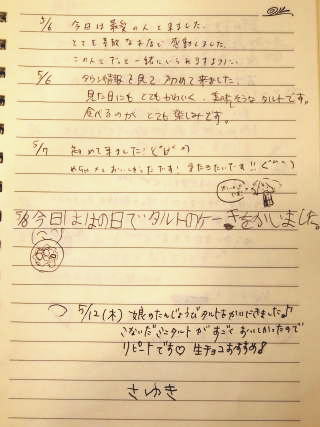 5/6 今日は最愛の人と来ました。
とても素敵なお店で感動しました。
この人とずっと一緒にいられますように。
5/6 タウン情報を見て初めて来ました。
見た目にもとてもかわいく、美味しそうなタルトです。
食べるのがとても楽しみです。
5/7 初めてきました!
めちゃめちゃおいしかったです! またきたいです!!
5/8 今日はははの日でタルトのケーきをかいました。
5/12(木) 娘のたんじょうびタルトをかいにきました♪
こないだミニタルトがすごくおいしかったので
リピートです♡ 生チョコおすすめ♪
さゆき